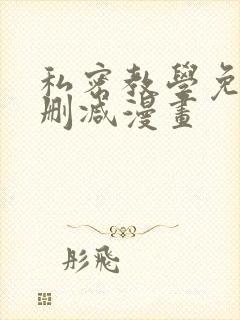 私密教學免
删减漫畫
彤飛